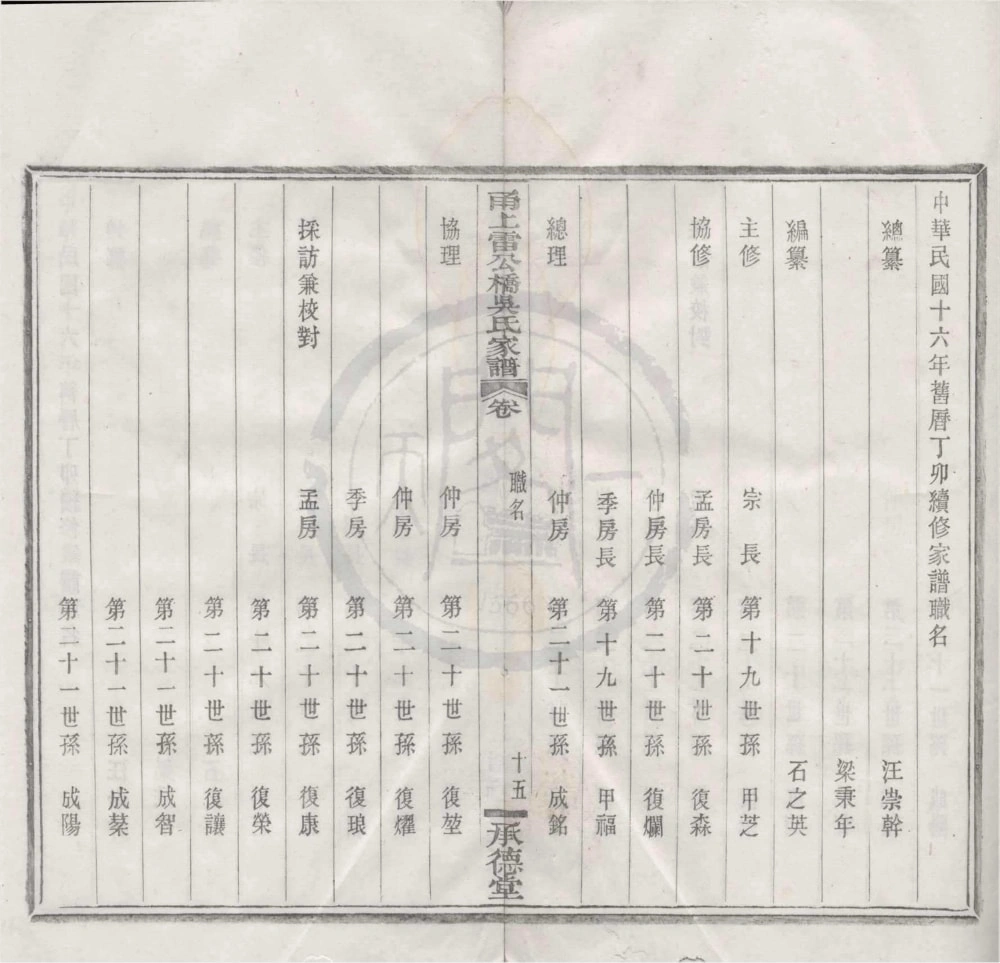 中華民國十六年舊曆丁卯續修家譜職名
總纂 汪崇幹
梁秉年
編纂 石之英
主修 宗長 第十九世孫 甲芝
協修 孟房長 第二十世孫 復森
仲房長 第二十世孫 復爛
季房長 第十九世孫 甲福
總理 仲房 第二十一世孫 成銘
甬上雷公橋吳氏家譜 卷 職名 十五 承德堂
協理 仲房 第二十世孫 復堃
仲房 第二十世孫 復燿
季房 第二十世孫 復琅
採訪兼校對 孟房 第二十世孫 復康
第二十世孫 復榮
第二十世孫 復讓
第二十一世孫 成智
第二十一世孫 成棻
第二十一世孫 成陽